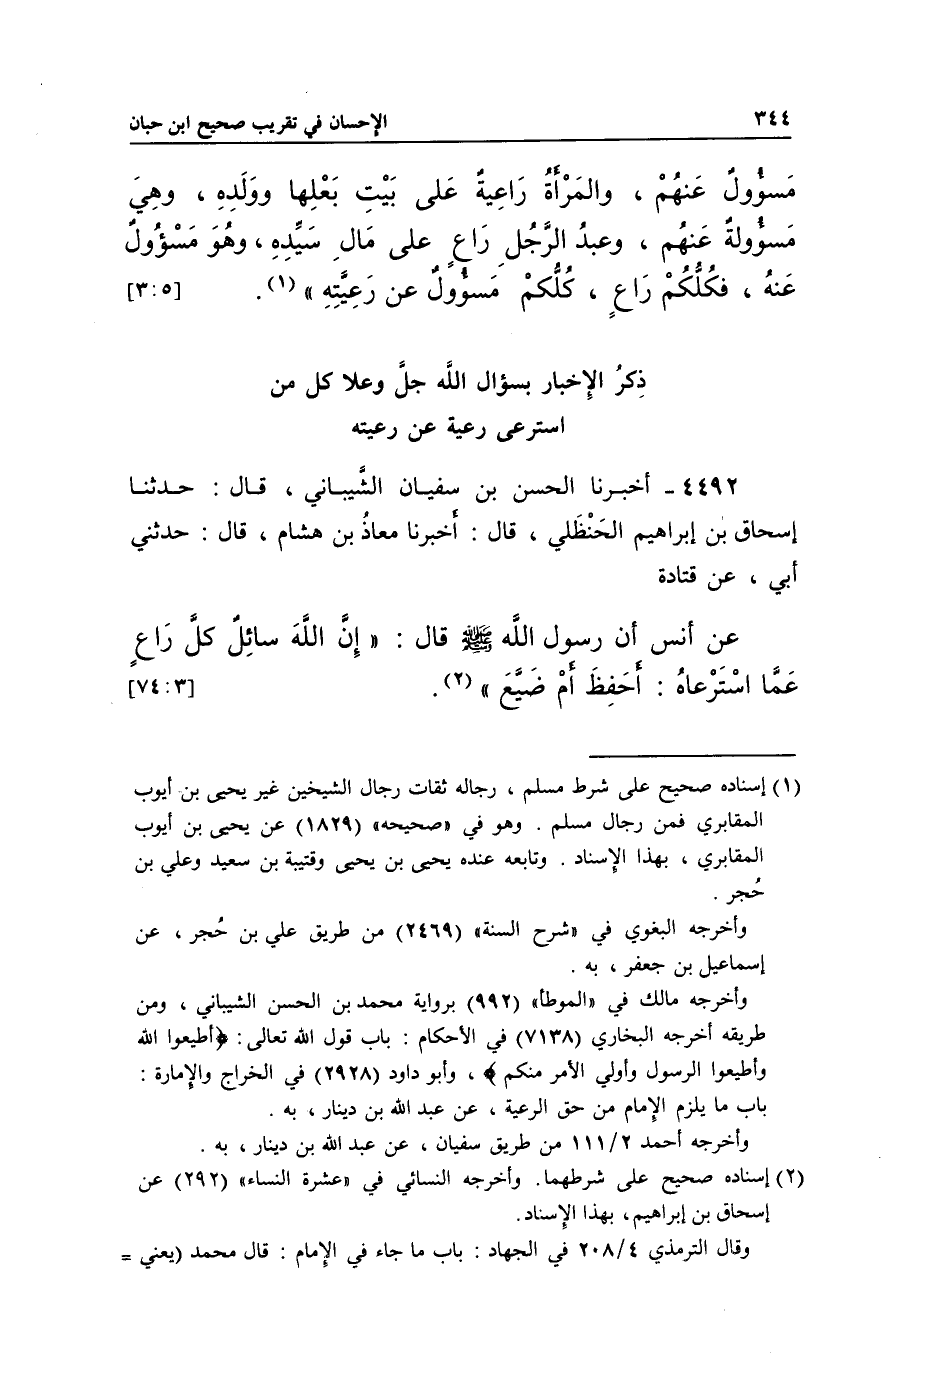 ٣٤٤ الإحسان في تقريب صحيح ابن حبان
مَسؤُولٌ عَنهُمْ ، والمَرْأَةُ رَاعِيةٌ عَلى بَيْتِ بَعْلِها ووَلَدِهِ ، وهِيَ
مَسؤُولةٌ عَنهُم ، وعبدُ الرَّجُلِ رَاعٍ على مَالِ سَيِّدِهِ ، وهُوَ مَسْؤُولٌ
عَنهُ ، فكُلُّكُمْ رَاعٍ ، كُلُّكمْ مَسؤُولٌ عن رَعِيَّتِهِ » (١). [٣:٥]
ذِكرُ الإِخبار بسؤال اللَّه جلَّ وعلا كل من
استرعى رعية عن رعيته
٤٤٩٢ - أخبرنا الحسن بن سفيان الشَّيباني ، قال : حدثنا
إسحاق بن إبراهيم الحَنْظَلي ، قال : أَخبرنا معاذُ بن هشام ، قال : حدثني
أبي ، عن قتادة
عن أنس أن رسول اللَّه ﷺ قال : « إِنَّ اللَّهَ سائِلٌ كلَّ رَاعٍ
عَمَّا اسْتَرْعاهُ : أَحَفِظَ أَمْ ضَيَّعَ » (٢). [٧٤:٣]
(١) إسناده صحيح على شرط مسلم ، رجاله ثقات رجال الشيخين غير يحيى بن أيوب
المقابري فمن رجال مسلم . وهو في «صحيحه» (١٨٢٩) عن يحيى بن أيوب
المقابري ، بهذا الإسناد . وتابعه عنده يحيى بن يحيى وقتيبة بن سعيد وعلي بن
حُجر .
وأخرجه البغوي في «شرح السنة» (٢٤٦٩) من طريق علي بن حُجر ، عن
إسماعيل بن جعفر ، به .
وأخرجه مالك في «الموطأ» (٩٩٢) برواية محمد بن الحسن الشيباني ، ومن
طريقه أخرجه البخاري (٧١٣٨) في الأحكام : باب قول الله تعالى: ﴿أطيعوا الله
وأطيعوا الرسول وأولي الأمر منكم ﴾ ، وأبو داود (٢٩٢٨) في الخراج والإمارة :
باب ما يلزم الإمام من حق الرعية ، عن عبد الله بن دينار ، به .
وأخرجه أحمد ١١١/٢ من طريق سفيان ، عن عبد الله بن دينار ، به .
(٢) إسناده صحيح على شرطهما. وأخرجه النسائي في «عشرة النساء» (٢٩٢) عن
إسحاق بن إبراهيم، بهذا الإسناد.
وقال الترمذي ٢٠٨/٤ في الجهاد : باب ما جاء في الإمام : قال محمد (يعني =